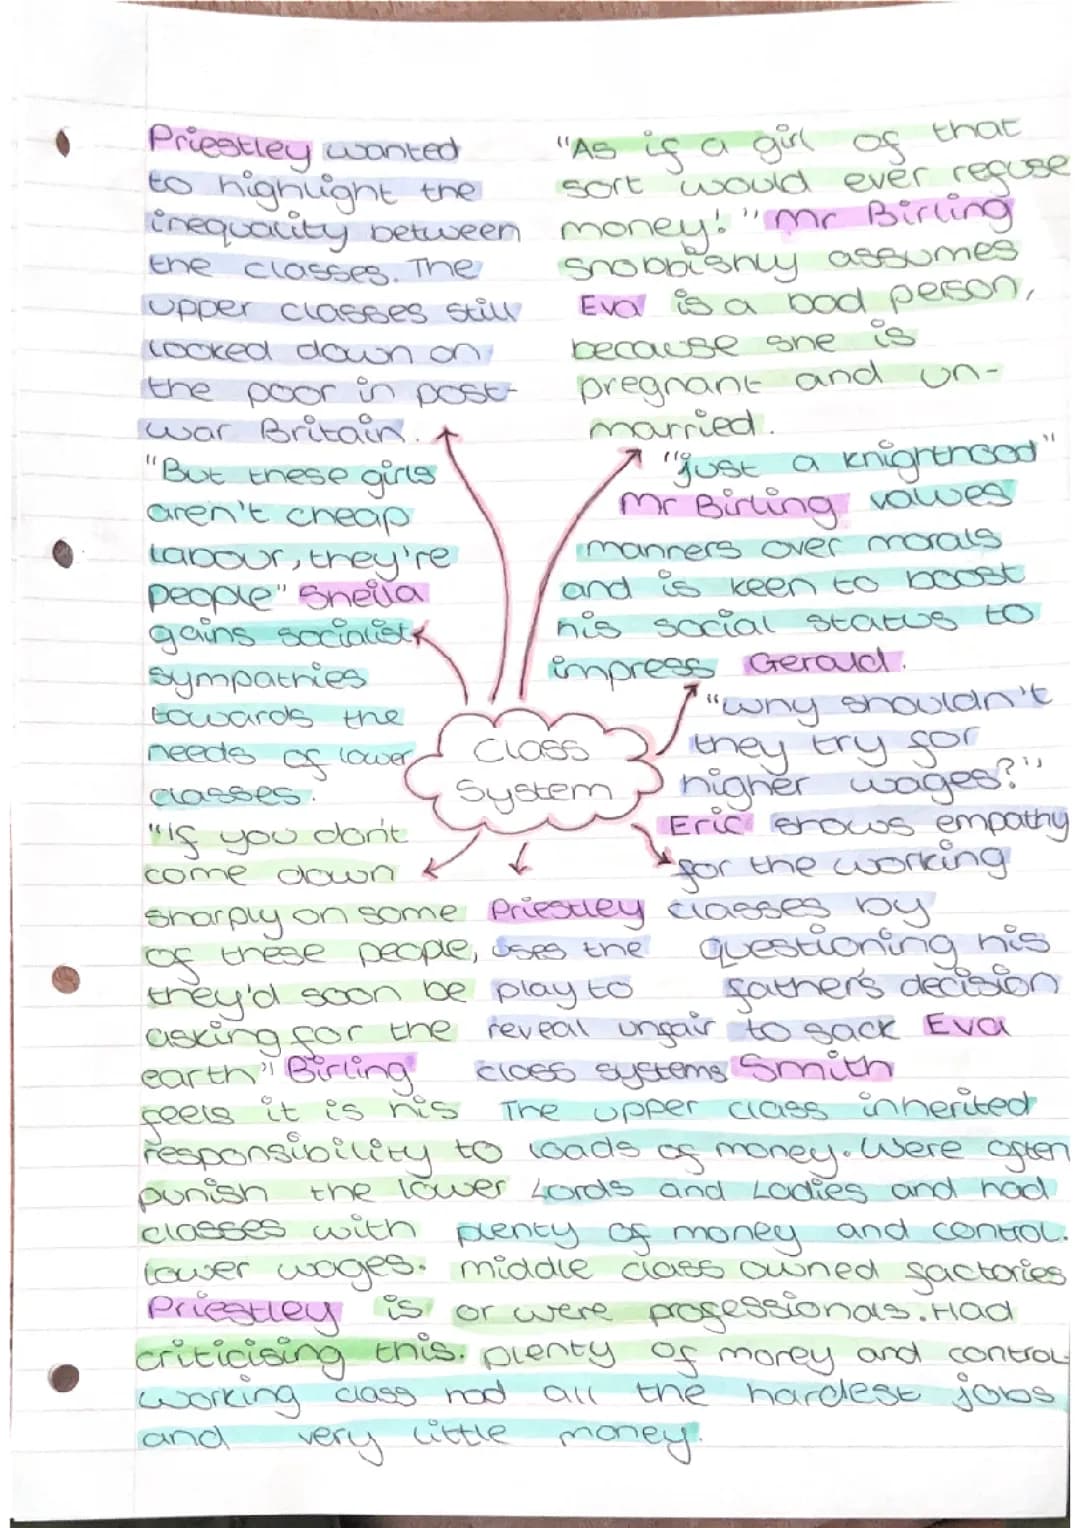 Priestley wanted
to highlight the
inequality between
the classes. The
upper classes still
looked down on
the poor in post-
war Britain.
"But these girls
aren't cheap
labour, they're
people" Sheila
gains socialist
sympathies
towards the
needs of lower
classes.
"If you don't
come down
sharply on some
of these people,
they'd soon be
asking for the
earth" Birling
feels it is his
responsibility to
punish the lower
classes with
lower wages.
Priestley is
criticising this.
"As if a girl of that
sort would ever refuse
money!" Mr Birling
snobbishly assumes
Eva is a bad person,
because she is
pregnant and un-
married.
"just a knighthood"
Mr Birling values
manners over morals
and is keen to boost
his social status to
impress Gerald.
Class
System
"why shouldn't
they try for
higher wages?"
Eric shows empathy
for the working
classes by
questioning his
father's decision
to sack Eva
Smith
Priestley
uses the
play to
reveal unfair
class systems
The upper class inherited
loads of money. Were often
Lords and Ladies and had
plenty of money and control.
middle class owned factories
or were professionals. Had
plenty of money and control.
working class had all the hardest jobs
and very little money.